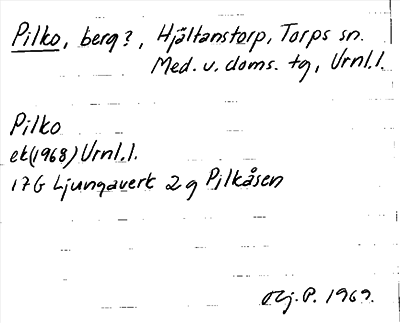 Pilko, berg?, Hjältanstorp, Torps sn.
Med. v. doms. tg, Urnl.l.
Pilko
ek(1968) Urnl.l.
17G Ljungaverk 2g Pilkåsen
P. 1969.